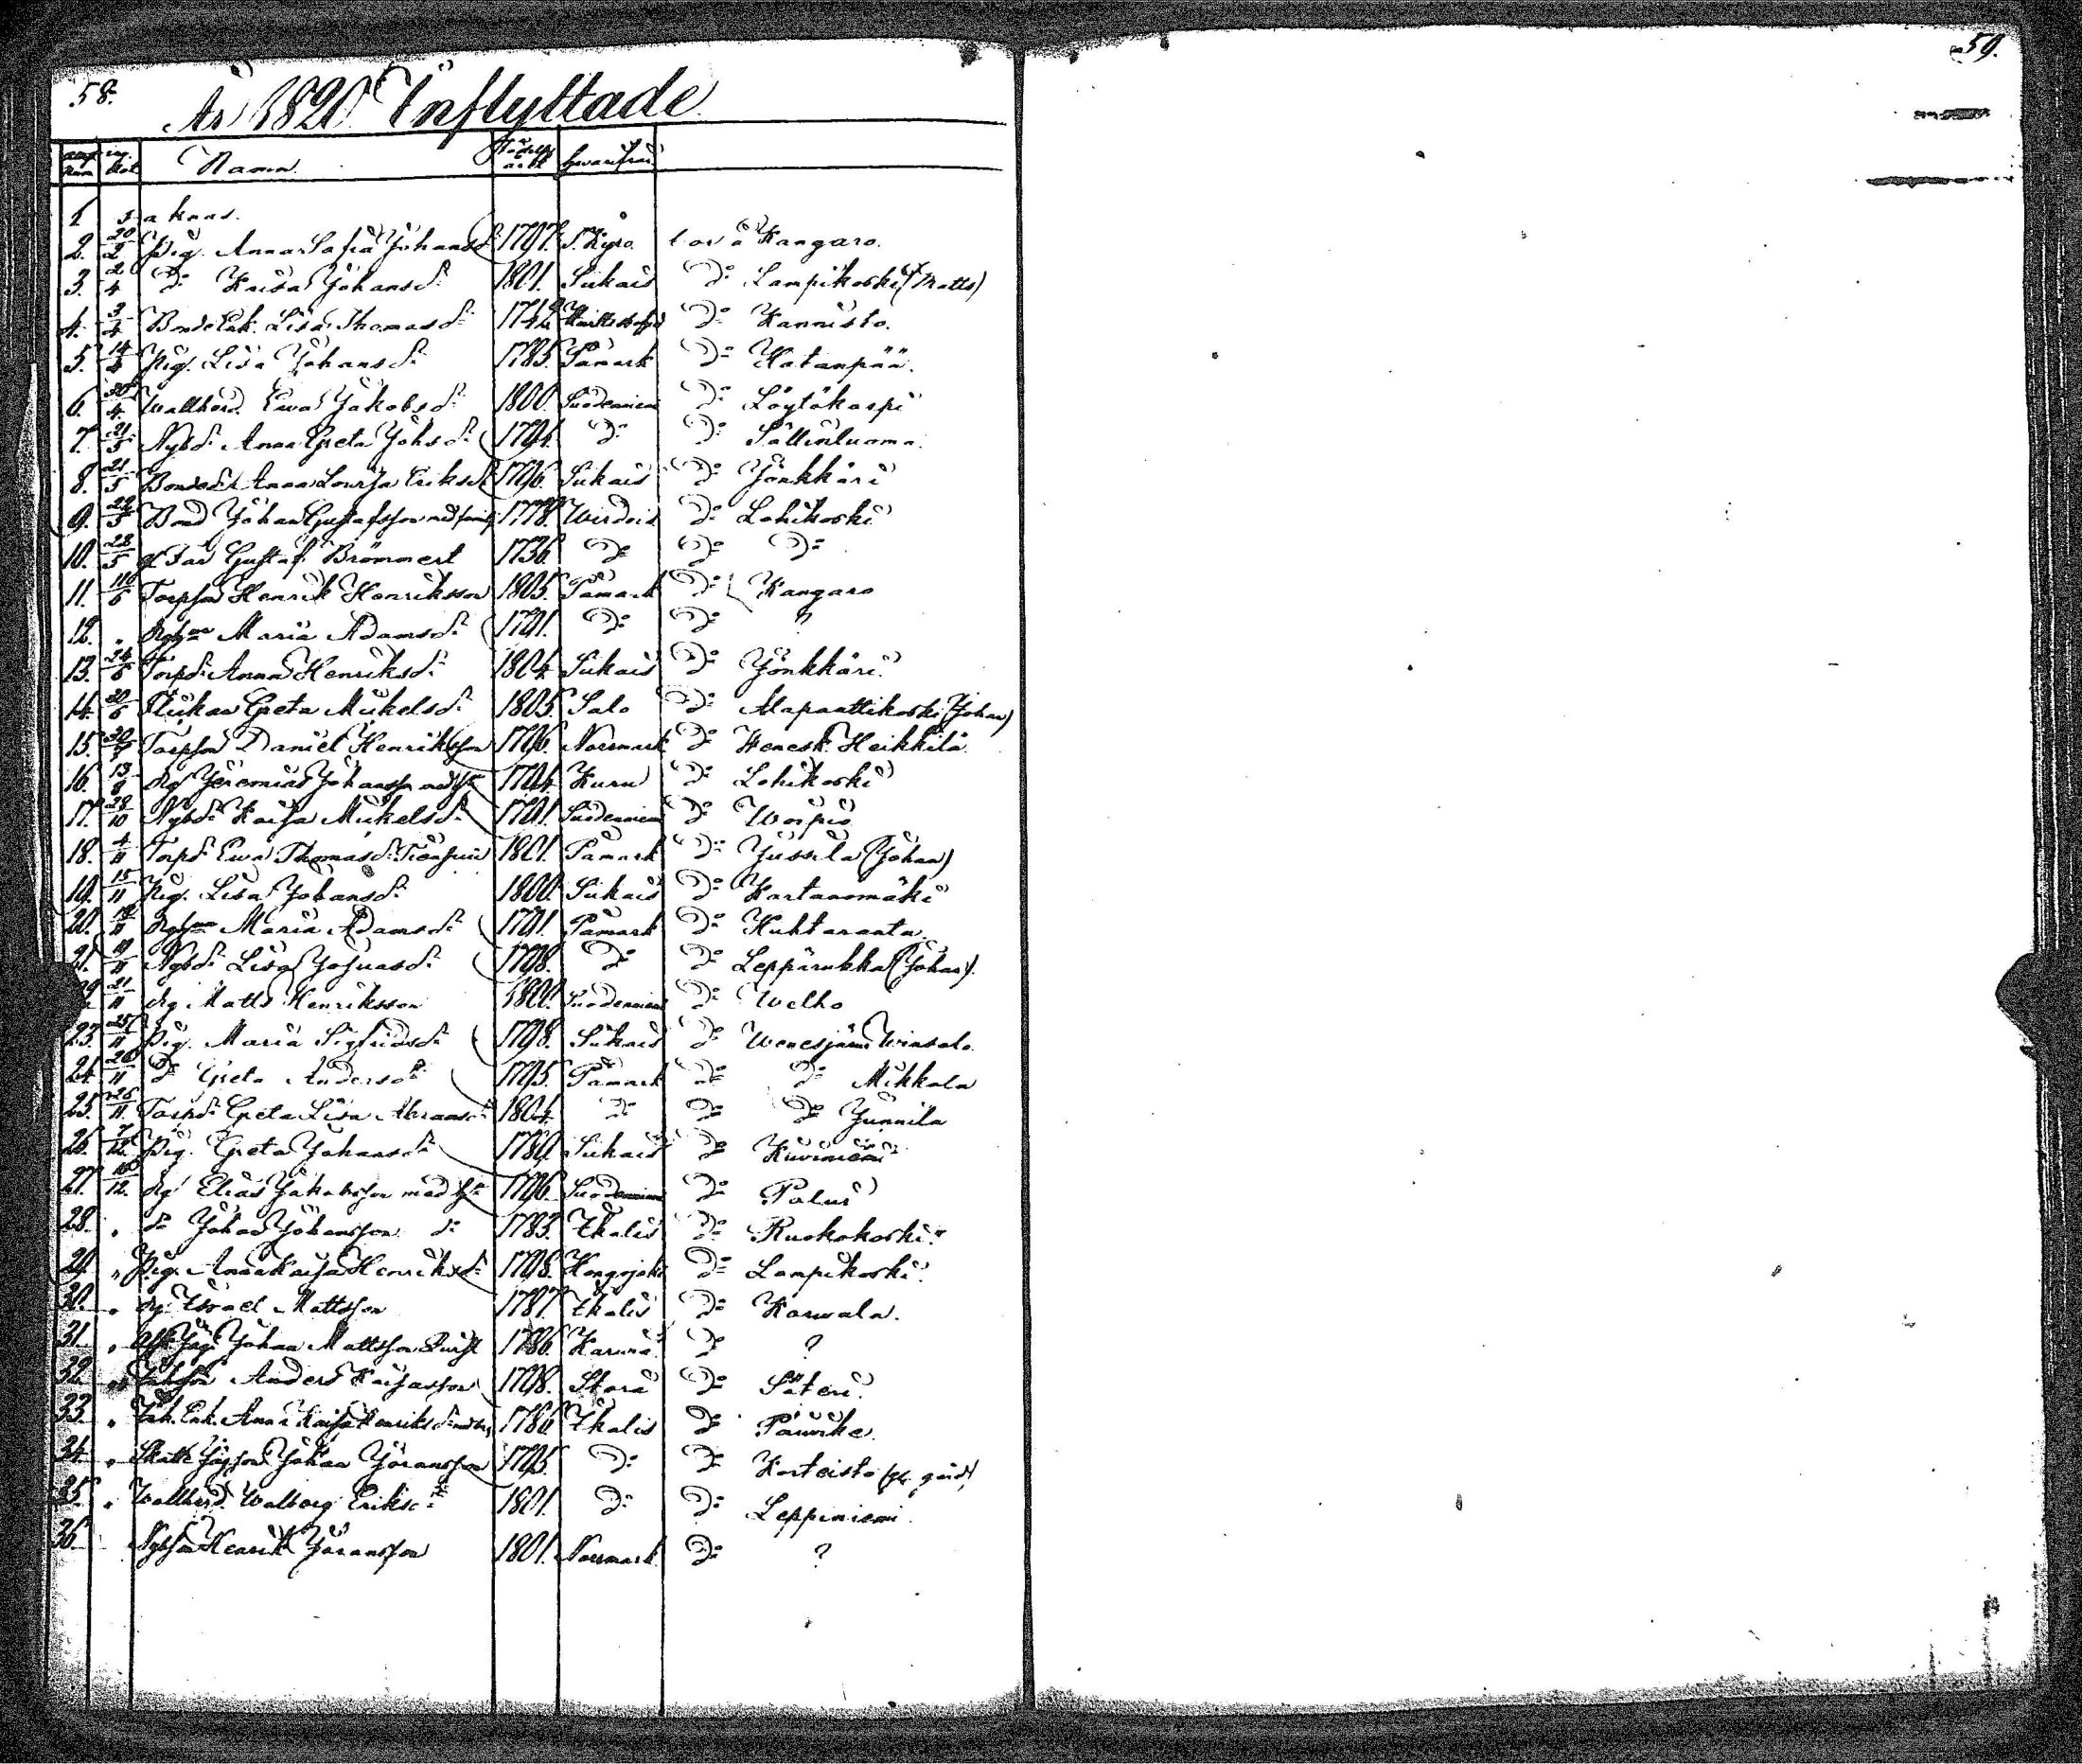 58.
59.
År 1820 Inflyttade
Namn. Födelse året hvarifrån
1
2. 20/2 Pig. Anna Safia Johansd:r 1797. S. Kyro Kangaro.
3. 2/4 D:o Kaisa Johansd:r 1801. Siikais D:o Lampikoski (Matts)
4. 3/4 Bonde Enk. Lisa Thomasd:r D:o Kannisto.
5. 14/4 Pig. Lisa Johansd:r 1785. Påmark D:o Katanpää.
6. 30/4 Wallherd. Ewa Jakobsd:r 1800. Suodenniemi D:o Löytökorpi
7. 21/5 Nybd:r Anna Greta Johsd:r D:o D:o Sällinluoma.
8. 21/5 Bonded:r Anna Lovisa Eriksd:r 1796. Siikais D:o Jönkkäri
9. 28/5 Bond Johan Gustafsson med familj 1778. Wirdois D:o Lohikoski
10. 28/5 Far Gustaf Brömmert 1736. D:o D:o D:o
11. 11/6 Torpson Henrik Henriksson 1805. Påmark D:o Kangaro
12. " Maria Adamsd:r 1791. D:o D:o ?
13. 24/6 Torpd:r Anna Henriksd:r 1804. Siikais D:o Jönkkäri.
14. 30/6 Flickan Greta Mickelsd:r 1805. Salo D:o Alapaattikoski (Johan)
15. Torpson Daniel Henriksson 1796. Norrmark D:o Wenesk. Heikkilä.
16. 13/8 Dg Jeremias Johansson med h:u 1794. Kuru D:o Lohikoski
17. 28/10 Nybd:r Kaisa Mickelsd:r 1791. Suodenniemi D:o Worpio
18. 4/11 Torpd:r Ewa Thomasd:r 1801. Påmark D:o Jussila (Johan)
19. 15/11 Pig. Lisa Johansd:r 1800. Siikais D:o Kartanomäki
20. Maria Adamsd:r 1791. Påmark D:o Kuhtaranta.
21. 19/11 Nybd:r Lisa Josuasd:r 1798. D:o D:o Leppärukka (Johan).
22. 21/11 Dg. Matts Henriksson 1800. Suodenniemi D:o Welho
23. 25/11 Pig. Maria Sigfridsd:r 1798. Siikais D:o Wenesjärvi Winsala.
24. 26/11 D:o Greta Andersd:r 1795. Påmark D:o D:o Mikkola
25. 26/11. Torpd:r Greta Lisa Abramsd:r 1804. D:o D:o D:o Junnila
26. 7/12. Pig. Greta Johansd:r 1789. Siikais D:o Kiviniemi
27. Dg Elias Jakobsson med h:u 1796. Suodenniemi D:o Palus
28. " D:o Johan Johansson D:o 1783. Ikalis D:o Ruokokoski.
29. " Pig. Anna Kaisa Henriksd:r 1798. Hongojoki D:o Lampikoski.
30. " Dg. Israel Mattsson 1787. Ikalis D:o Karwala.
31. " Johan Mattsson 1786. D:o ?
32. " Anders Kaisasson 1798. Storå D:o Säteri.
33. " Enk. Anna Kaisa Henriksd:r 1786. Ikalis D:o
34. " Johan Jöransson 1795. D:o D:o Korteisto
35. " Wallherd. Walborg Eriksd:r 1801. D:o D:o Leppiniemi.
36. Nybson Henrik Jöransson 1801. Norrmark D:o ?